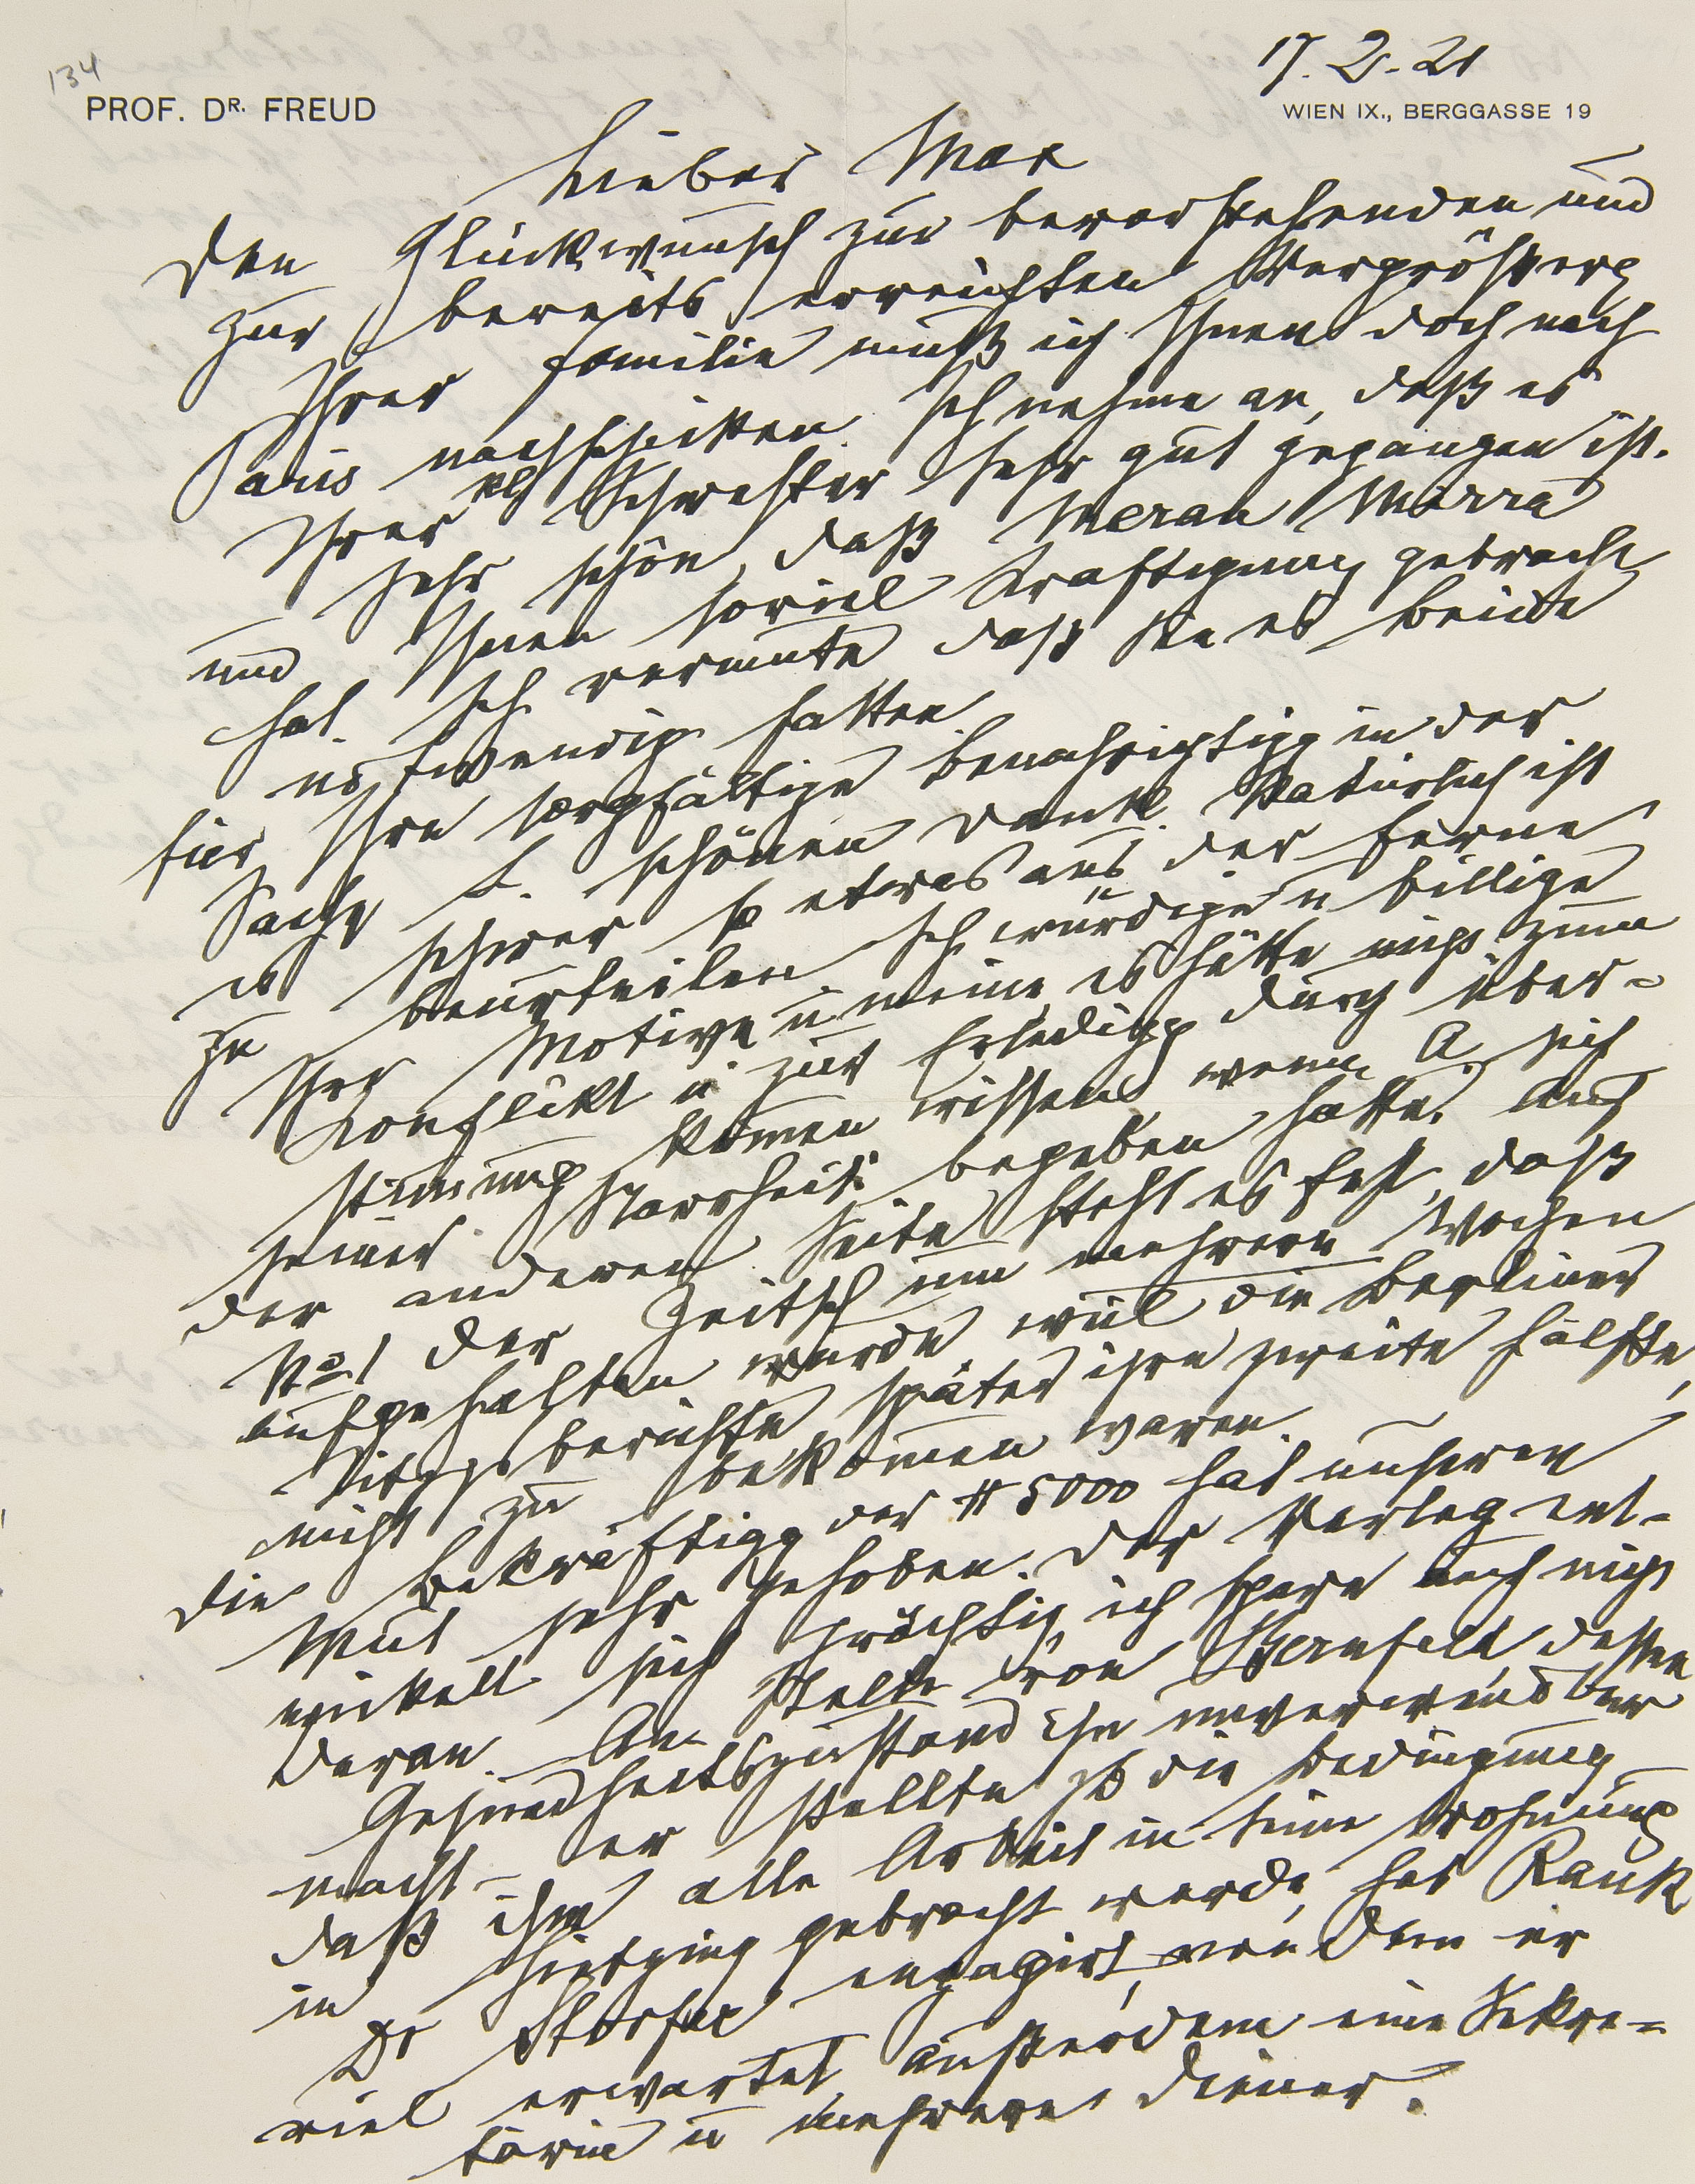 134
17.2.21
PROF. DR. FREUD
WIEN IX., BERGGASSE 19
Lieber Max
Den Glückwunsch zur bevorstehenden und
zur bereits erreichten Vergrößerg
Ihrer Familie muß ich Ihnen doch nach
Paris nachschicken. Ich nehme an, daß es
Ihrer Schwester sehr gut gegangen ist.
Sehr schön, daß Meran Mirra
und Ihnen soviel Kräftigung gebracht
hat. Ich vermute daß sie es beide
notwendig hatten.
Für Ihre sorgfältige Benachrichtigg in der
Sache L. schönen Dank. Natürlich ist
es schwer so etwas aus der Ferne
zu beurteilen. Ich würdige u billige
Ihre Motive u meine, es hätte nicht zum
Konflikt u zur Erledigg durch Über-
stimmung kommen müssen, wenn A. sich
seiner Starrheit begeben hätte. Auf
der anderen Seite steht es fest, daß
No 1 der Zeitsch um mehrere Wochen
aufgehalten wurde weil die Berliner
Sitzgsberichte, später ihre zweite Hälfte,
nicht zu bekommen waren.
Die Bekräftigg der $ 5000 hat unseren
Mut sehr gehoben. Der Verlag ent-
wickelt sich prächtig, ich spare auch nicht
daran. An Stelle von Bernfeld, dessen
Gesundheitszustand ihn unverwendbar
macht – er stellte zb die Bedingung,
daß ihm alle Arbeit in seine Wohnung
in Hietzing gebracht werde, hat Rank
Dr Storfer engagirt, von dem er
viel erwartet, außerdem eine Sekre-
tärin u mehrere Diener.